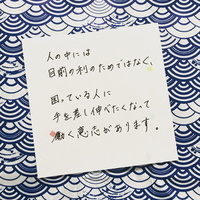 人の中には
目前の利のためではなく、
困っている人に
手を差し伸べたくなって
働く意志があります。